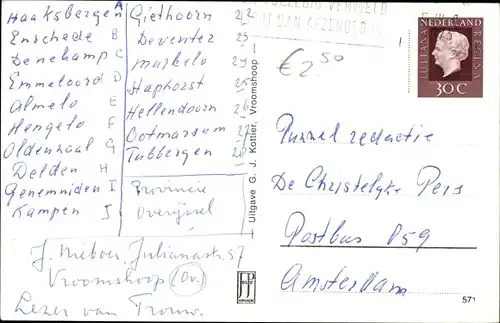 Haaksbergen A
Enschede B
Denekamp C
Emmeloord D
Almelo E
Hengelo F
Oldenzaal G
Delden H
Genemuiden I
Kampen J
Giethoorn 22
Deventer 23
Markelo 24
Staphorst 25
Hellendoorn 26
Ootmarsum 27
Tubbergen 28
Provincie
Overijssel
J. Meboer, Julianastr. 57
Vroomshoop (Ov.)
Lezer van Trouw.
Uitgave G. J. Kottier, Vroomshoop
VOLLEDIG VERMELD
DAN AFZENDER
€ 2,50
NEDERLAND
JULIANA REGINA
30 C
Puzzel redactie
De Christelyke Pers
Postbus 859
Amsterdam
571